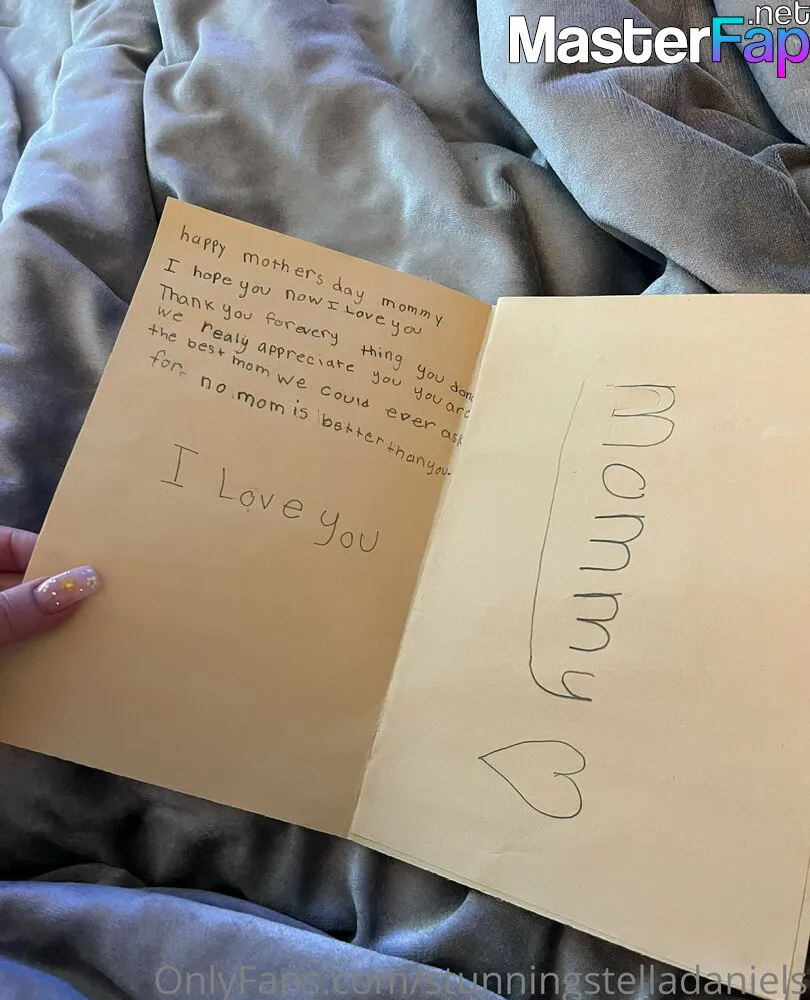 MasterFap
.net
happy mothers day mommy
I hope you now I Love you
Thank you forevery thing you done
we realy appreciate you you are
the best mom we could ever ask
for. no mom is better than you.
I Love you
mommy
OnlyFans.com/stunningstelladaniels